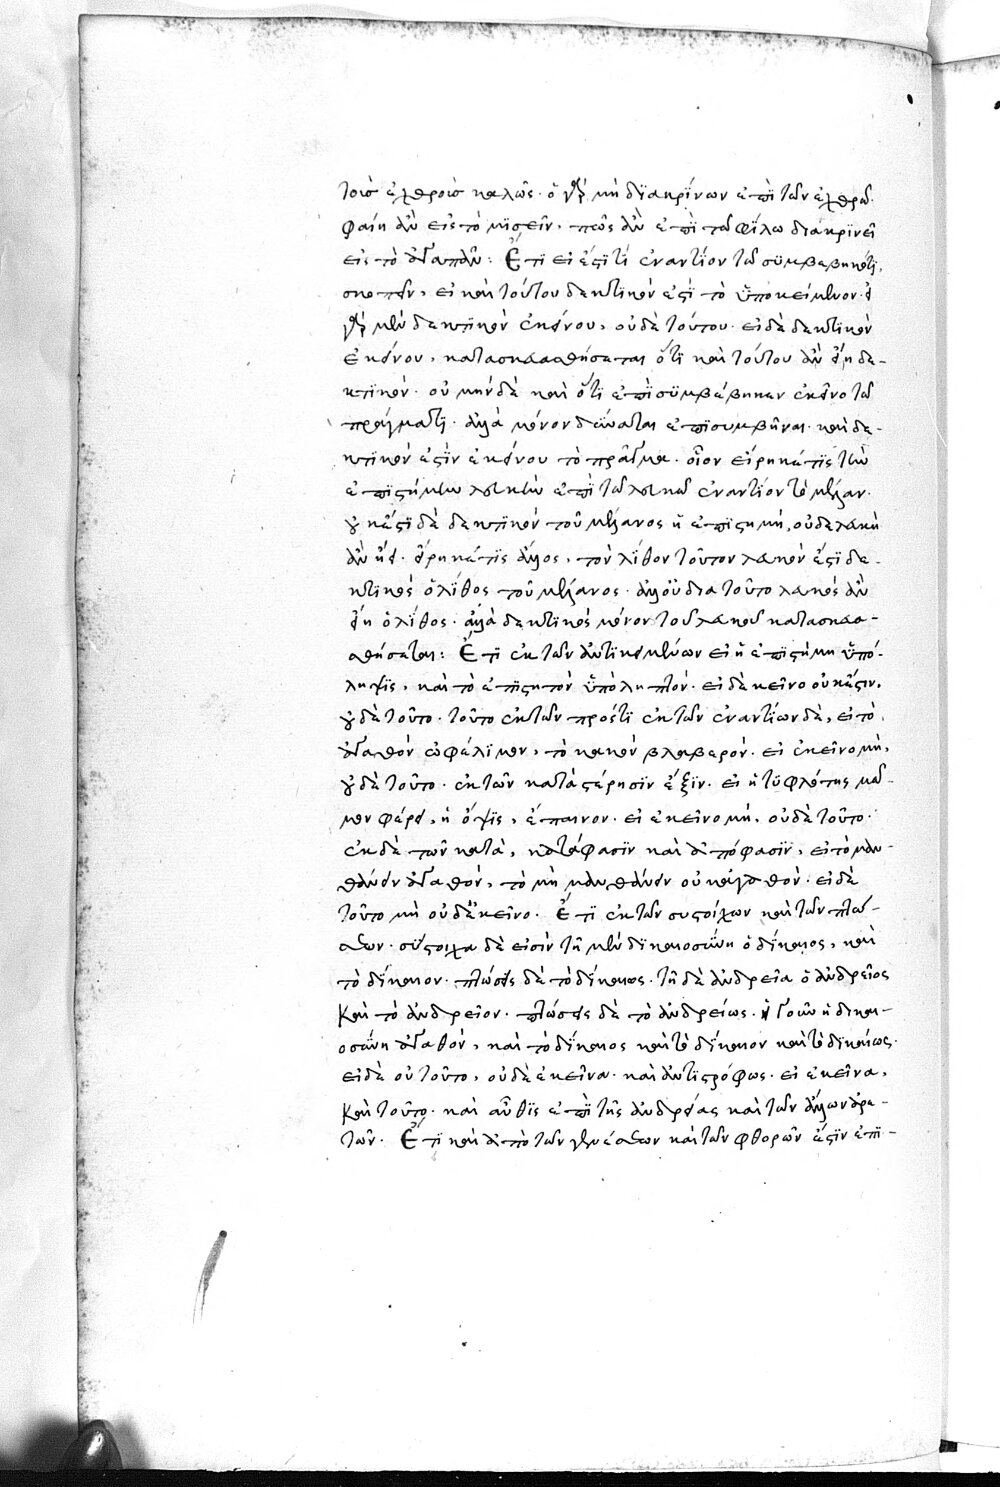 τοῖσ ἐχθροῖσ καλῶς· ὁ γὰρ μὴ διακρίνων ἐπὶ τῶν ἐχθρῶν
φαίη ἂν εἰς τὸ μισεῖν, πῶς ἂν ἐπὶ τῶ φίλω διακρινεῖ
εἰς τὸ ἀγαπᾶν: Ἔτι εἰ ἔστι τί ἐναντίον τῶ συμβεβηκότι,
σκοπεῖν, εἰ καὶ τούτου δεκτικὸν ἐστὶ τὸ ὑποκείμενον· εἰ
γὰρ μὲν δεκτικὸν ἐκείνου, οὐδὲ τούτου· εἰ δὲ δεκτικὸν
ἐκείνου, κατασκευασθήσεται ὅτι καὶ τούτου ἂν εἴη δε-
κτικόν· οὐ μὴν δὲ καὶ ὅτι ἐπισυμβέβηκεν ἐκεῖνο τῶ
πράγματι· ἀλλὰ μόνον δύναται ἐπισυμβῆναι· καὶ δε-
κτικόν ἐστὶν ἐκείνου τὸ πρᾶγμα· οἷον εἴρηκέ τις τὴν
ἐπιστήμην λευκὴν ἐπεὶ τῶ λευκῶ ἐναντίον τὸ μέλαν·
οὐκ ἔστι δὲ δεκτικὸν τοῦ μέλανος ἡ ἐπιστήμη, οὐδὲ λευκὴ
ἂν εἴη· εἴρηκέ τις ἄλλος, τὸν λίθον τοῦτον λευκὸν ἔστι δε-
κτικὸς ὁ λίθος τοῦ μέλανος· ἀλλ' οὐ διὰ τοῦτο λευκὸς ἂν
εἴη ὁ λίθος· ἀλλὰ δεκτικὸς μόνον τοῦ λευκοῦ κατασκευα-
σθήσεται: Ἔτι ἐκ τῶν ἀντικειμένων εἰ ἡ ἐπιστήμη ὑπό-
ληψις, καὶ τὸ ἐπιστητὸν ὑποληπτόν· εἰ δ' ἐκεῖνο οὐκ ἔστιν,
οὐδὲ τοῦτο· τοῦτο ἐκ τῶν πρός τι ἐκ τῶν ἐναντίων δὲ, εἰ τὸ
ἀγαθὸν ὠφέλιμον, τὸ κακὸν βλαβερόν· εἰ ἐκεῖνο μὴ,
οὐδὲ τοῦτο· ἐκ τῶν κατὰ στέρησιν ἕξιν· εἰ ἡ τυφλότης μῶ-
μον φέρει, ἡ ὄψις, ἔπαινον· εἰ ἐκεῖνο μὴ, οὐδὲ τοῦτο·
ἐκ δὲ τῶν κατὰ, κατάφασιν καὶ ἀπόφασιν, εἰ τὸ μαν-
θάνειν ἀγαθὸν, τὸ μὴ μανθάνειν οὐκ ἀγαθόν· εἰ δὲ
τοῦτο μὴ οὐδ' ἐκεῖνο· Ἔτι ἐκ τῶν συστοίχων καὶ τῶν πτώ-
σεων· σύστοιχα δὲ εἰσὶν τῆ μὲν δικαιοσύνη ὁ δίκαιος, καὶ
τὸ δίκαιον· πτώσεις δὲ τὸ δίκαιως· τῆ δὲ ἀνδρεία ὁ ἀνδρεῖος
καὶ τὸ ἀνδρεῖον· πτώσεις δὲ τὸ ἀνδρείως· εἰ γοῦν ἡ δικαι-
οσύνη ἀγαθὸν, καὶ τὸ δίκαιος καὶ τὸ δίκαιον καὶ τὸ δικαίως·
εἰ δὲ οὐ τοῦτο, οὐδὲ ἐκεῖνα· καὶ ἀντιστρόφως· εἰ ἐκεῖνα,
καὶ τοῦτο· καὶ αὖθις ἐπὶ τῆς ἀνδρείας καὶ τῶν ἄλλων ἀρε-
τῶν· Ἔτι καὶ ἀπὸ τῶν γενέσεων καὶ τῶν φθορῶν ἔστιν ἐπι-